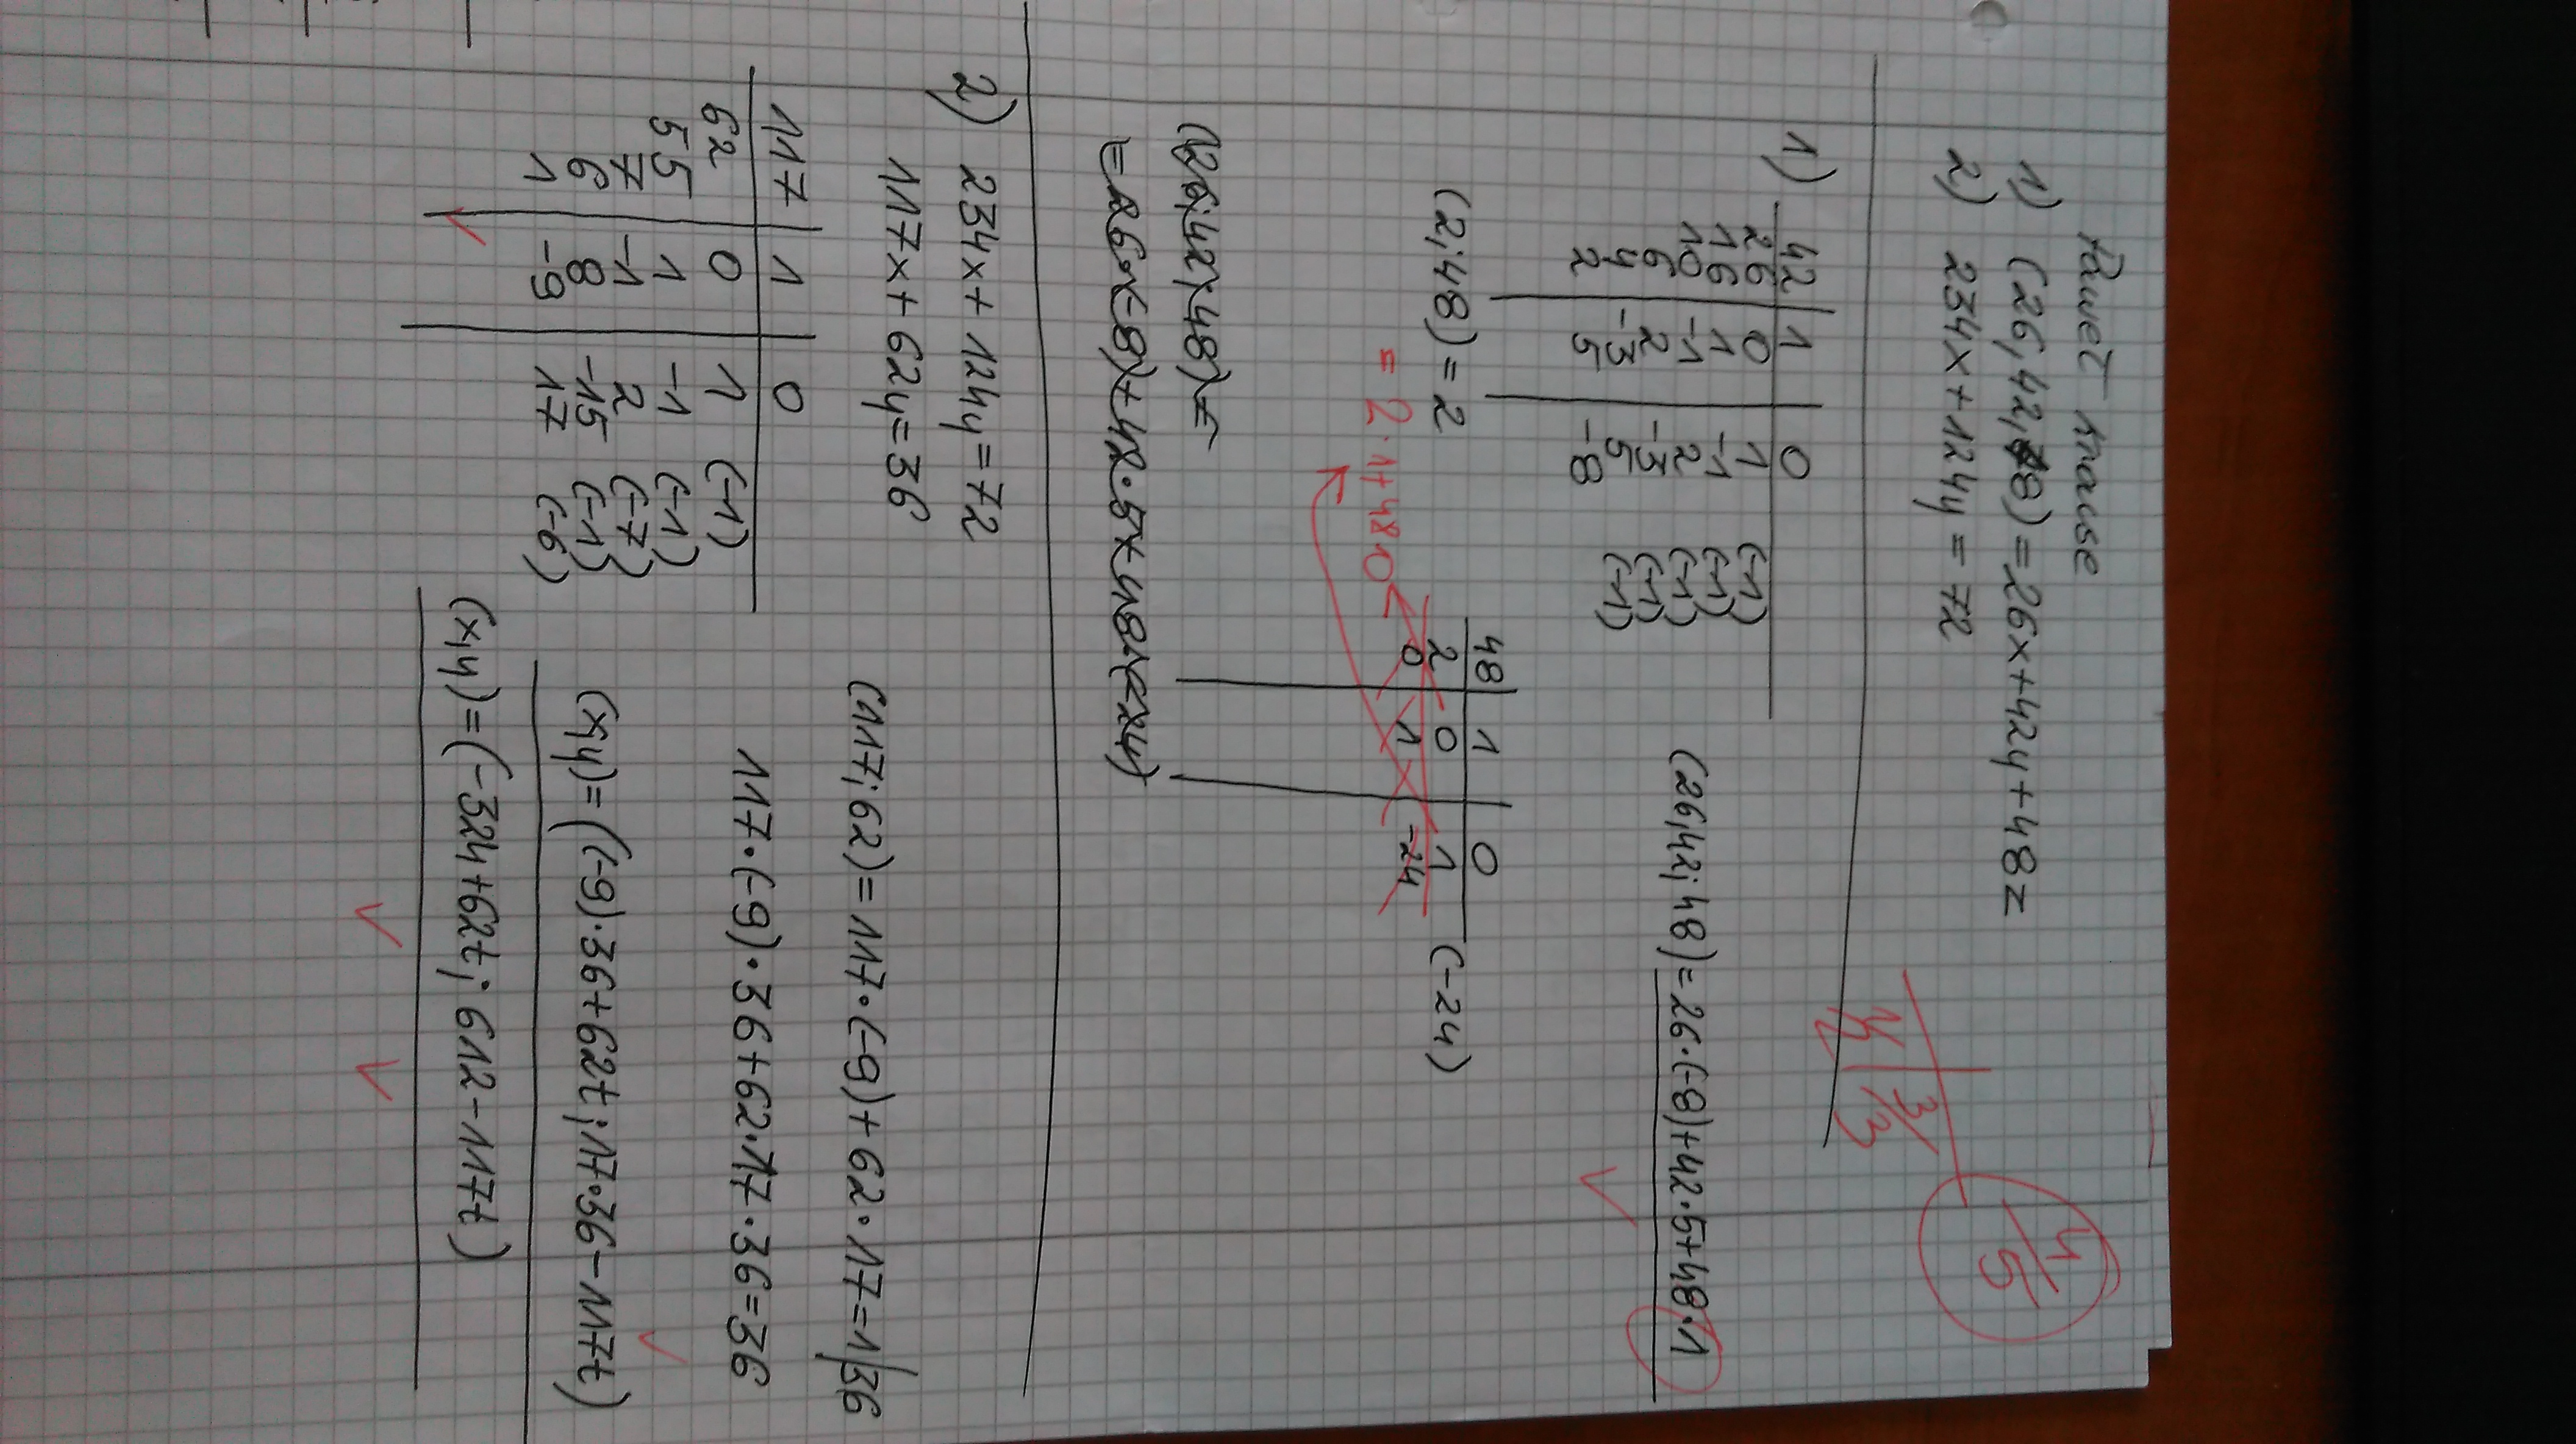 Paweł Krause
1) (26,42,48) = 26x+42y+48z
2) 234x+124y = 72
4/5
1/2 | 3/3
1) 42 | 1 | 0
26 | 0 | 1 (-1)
16 | 1 | -1 (-1)
10 | -1 | 2 (-1)
6 | 2 | -3 (-1)
4 | -3 | 5 (-1)
2 | 5 | -8
(26,42;48) = 26·(-8)+42·5+48·1
(2;48) = 2
= 2·1+48·0
48 | 1 | 0
2 | 0 | 1 (-24)
0 | 1 | -24
(26;42;48) =
= 26·(-8)+42·5+48·(-24)
2) 234x+124y=72
117x+62y=36
117 | 1 | 0
62 | 0 | 1 (-1)
55 | 1 | -1 (-1)
7 | -1 | 2 (-7)
6 | 8 | -15 (-1)
1 | -9 | 17 (-6)
(117;62) = 117·(-9)+62·17=1 |36
117·(-9)·36+62·17·36=36
(x,y)=((-9)·36+62t;17·36-117t)
(x,y)=(-324+62t; 612-117t)